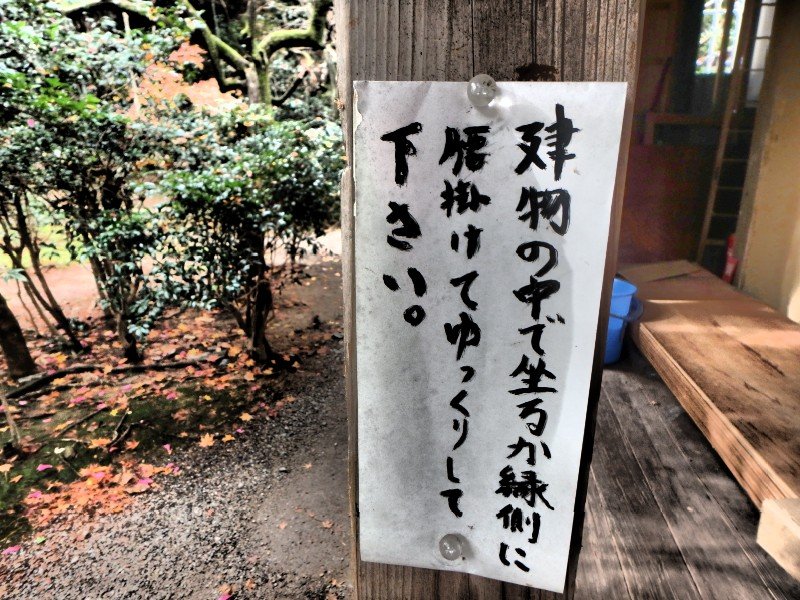 建物の中で坐るか縁側に
腰掛けてゆっくりして
下さい。